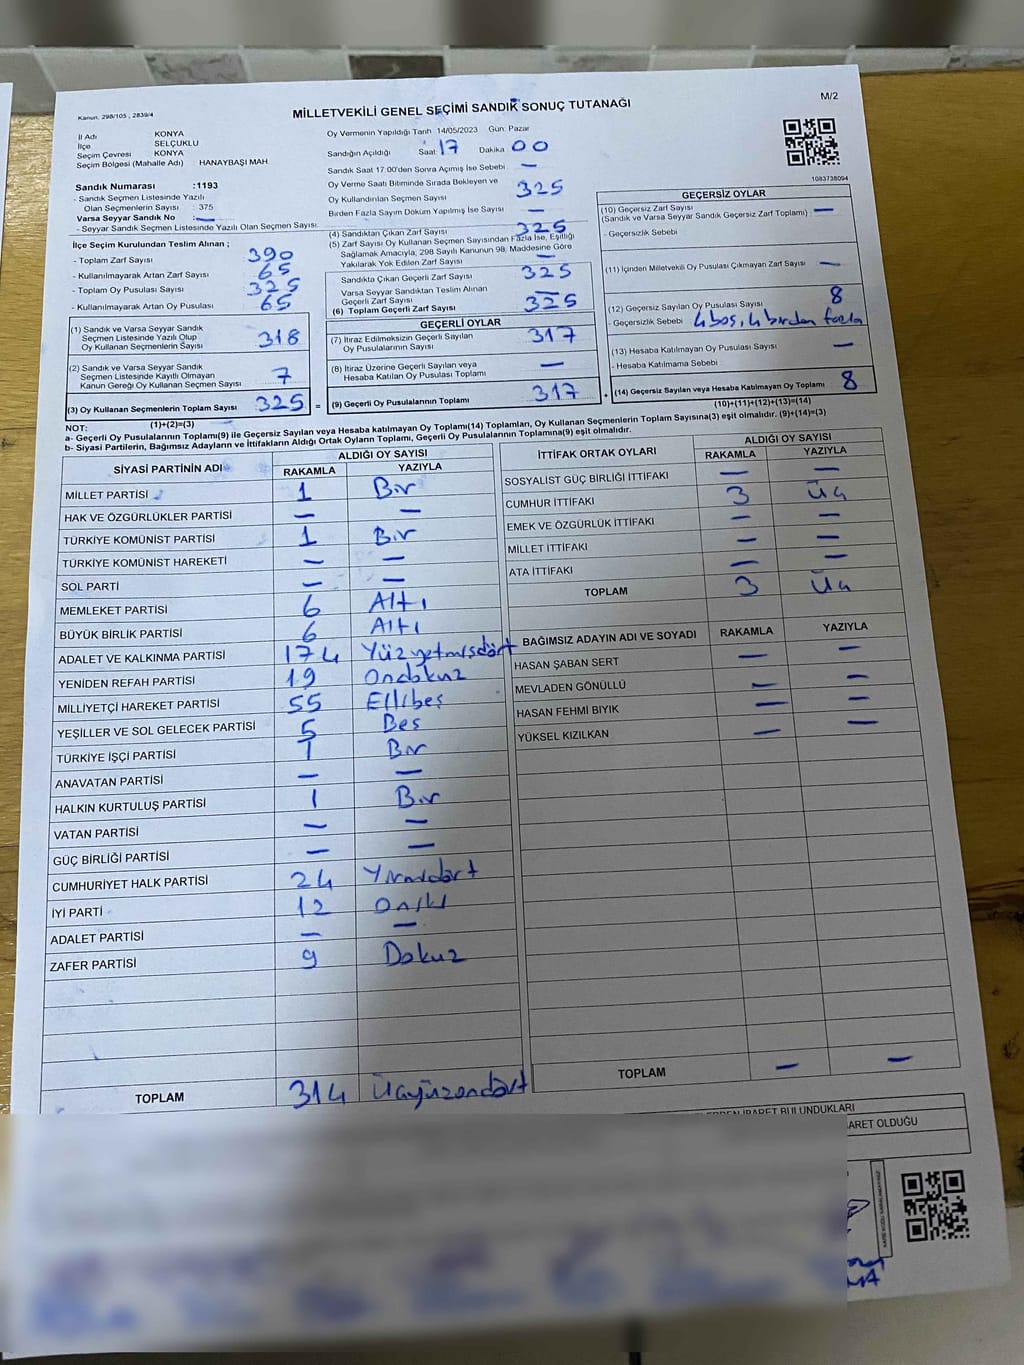 Kanun, 298/105 , 2839/4
MİLLETVEKİLİ GENEL SEÇİMİ SANDIK SONUÇ TUTANAĞI
M/2
İl Adı KONYA
İlçe SELÇUKLU
Seçim Çevresi KONYA
Seçim Bölgesi (Mahalle Adı) HANAYBAŞI MAH
Sandık Numarası :1193
- Sandık Seçmen Listesinde Yazılı
Olan Seçmenlerin Sayısı : 375
Varsa Seyyar Sandık No : —
- Seyyar Sandık Seçmen Listesinde Yazılı Olan Seçmen Sayısı:
İlçe Seçim Kurulundan Teslim Alınan ;
- Toplam Zarf Sayısı 390
- Kullanılmayarak Artan Zarf Sayısı 65
- Toplam Oy Pusulası Sayısı 325
- Kullanılmayarak Artan Oy Pusulası 65
(1) Sandık ve Varsa Seyyar Sandık
Seçmen Listesinde Yazılı Olup
Oy Kullanan Seçmenlerin Sayısı 318
(2) Sandık ve Varsa Seyyar Sandık
Seçmen Listesinde Kayıtlı Olmayan
Kanun Gereği Oy Kullanan Seçmen Sayısı 7
(3) Oy Kullanan Seçmenlerin Toplam Sayısı 325
(1)+(2)=(3)
Oy Vermenin Yapıldığı Tarih 14/05/2023 Gün: Pazar
Sandığın Açıldığı Saat 17 Dakika 00
Sandık Saat 17:00'den Sonra Açımış İse Sebebi —
Oy Verme Saati Bitiminde Sırada Bekleyen ve
Oy Kullandırılan Seçmen Sayısı 325
Birden Fazla Sayım Döküm Yapılmış İse Sayısı —
(4) Sandıktan Çıkan Zarf Sayısı 325
(5) Zarf Sayısı Oy Kullanan Seçmen Sayısından Fazla İse, Eşitliği
Sağlamak Amacıyla, 298 Sayılı Kanunun 98. Maddesine Göre
Yakılarak Yok Edilen Zarf Sayısı —
Sandıkta Çıkan Geçerli Zarf Sayısı 325
Varsa Seyyar Sandıktan Teslim Alınan
Geçerli Zarf Sayısı —
(6) Toplam Geçerli Zarf Sayısı 325
GEÇERLİ OYLAR
(7) İtiraz Edilmeksizin Geçerli Sayılan
Oy Pusulalarının Sayısı 317
(8) İtiraz Üzerine Geçerli Sayılan veya
Hesaba Katılan Oy Pusulası Toplamı —
= (9) Geçerli Oy Pusulalarının Toplamı 317
1083738094
GEÇERSİZ OYLAR
(10) Geçersiz Zarf Sayısı
(Sandık ve Varsa Seyyar Sandık Geçersiz Zarf Toplamı) —
- Geçersizlik Sebebi
(11) İçinden Milletvekili Oy Pusulası Çıkmayan Zarf Sayısı —
(12) Geçersiz Sayılan Oy Pusulası Sayısı 8
- Geçersizlik Sebebi 4 boş, 4 birden fazla
(13) Hesaba Katılmayan Oy Pusulası Sayısı —
- Hesaba Katılmama Sebebi
+ (14) Geçersiz Sayılan veya Hesaba Katılmayan Oy Toplamı 8
(10)+(11)+(12)+(13)=(14)
NOT:
a- Geçerli Oy Pusulalarının Toplamı(9) ile Geçersiz Sayılan veya Hesaba katılmayan Oy Toplamı(14) Toplamları, Oy Kullanan Seçmenlerin Toplam Sayısına(3) eşit olmalıdır. (9)+(14)=(3)
b- Siyasi Partilerin, Bağımsız Adayların ve İttifakların Aldığı Ortak Oyların Toplamı, Geçerli Oy Pusulalarının Toplamına(9) eşit olmalıdır.
SİYASİ PARTİNİN ADI ALDIĞI OY SAYISI
RAKAMLA YAZIYLA
MİLLET PARTİSİ 1 Bir
HAK VE ÖZGÜRLÜKLER PARTİSİ — —
TÜRKİYE KOMÜNİST PARTİSİ 1 Bir
TÜRKİYE KOMÜNİST HAREKETİ — —
SOL PARTİ — —
MEMLEKET PARTİSİ 6 Altı
BÜYÜK BİRLİK PARTİSİ 6 Altı
ADALET VE KALKINMA PARTİSİ 174 Yüzyetmişdört
YENİDEN REFAH PARTİSİ 19 Ondokuz
MİLLİYETÇİ HAREKET PARTİSİ 55 Ellibeş
YEŞİLLER VE SOL GELECEK PARTİSİ 5 Beş
TÜRKİYE İŞÇİ PARTİSİ 1 Bir
ANAVATAN PARTİSİ — —
HALKIN KURTULUŞ PARTİSİ 1 Bir
VATAN PARTİSİ — —
GÜÇ BİRLİĞİ PARTİSİ — —
CUMHURİYET HALK PARTİSİ 24 Yirmidört
İYİ PARTİ 12 Oniki
ADALET PARTİSİ — —
ZAFER PARTİSİ 9 Dokuz
TOPLAM 314 Üçyüzondört
İTTİFAK ORTAK OYLARI ALDIĞI OY SAYISI
RAKAMLA YAZIYLA
SOSYALİST GÜÇ BİRLİĞİ İTTİFAKI — —
CUMHUR İTTİFAKI 3 Üç
EMEK VE ÖZGÜRLÜK İTTİFAKI — —
MİLLET İTTİFAKI — —
ATA İTTİFAKI — —
TOPLAM 3 Üç
BAĞIMSIZ ADAYIN ADI VE SOYADI RAKAMLA YAZIYLA
HASAN ŞABAN SERT — —
MEVLADEN GÖNÜLLÜ — —
HASAN FEHMİ BIYIK — —
YÜKSEL KIZILKAN — —
TOPLAM — —
İBARET BULUNDUKLARI
ARET OLDUĞU